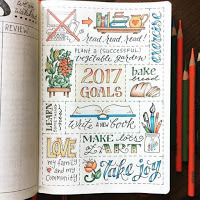 REVIEW
read, read, read!
exercise
PLANT A (SUCCESSFUL)
vegetable garden
2017
GOALS
bake
bread
LEARN
Write a new book
LOVE
my family
and my
community!
MAKE lots of
ART
take joy